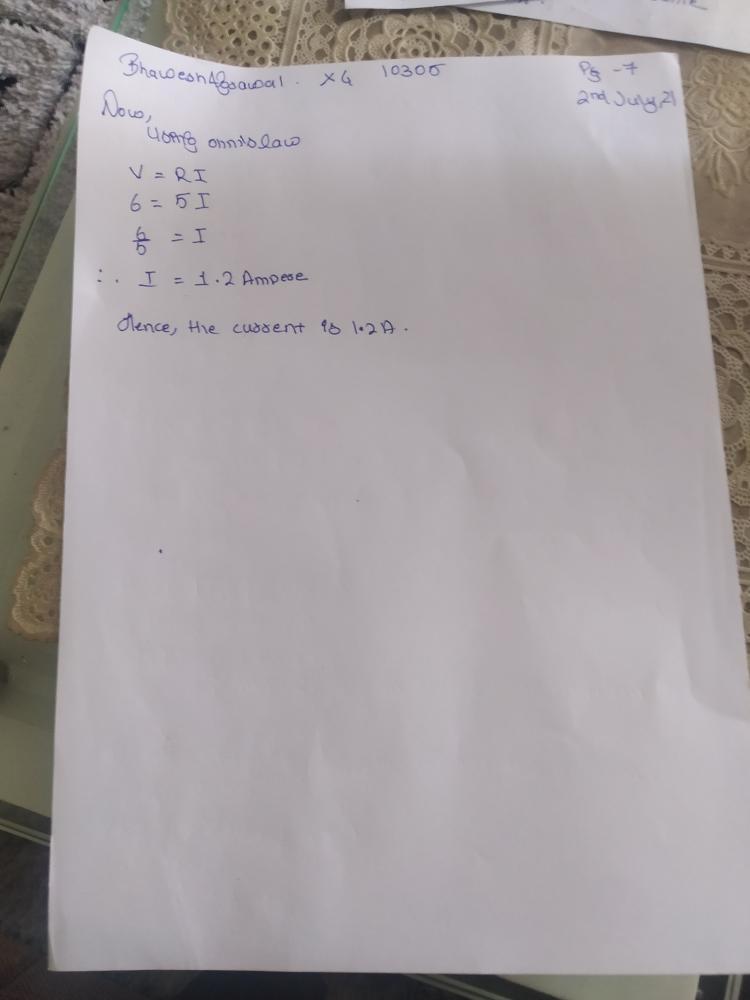 Bhawesh Agrawal. X G 10305 Pg - 7
2nd July, 21
Now,
Using ohm's law
V = RI
6 = 5 I
6/5 = I
∴ I = 1.2 Ampere
Hence, the current is 1.2A.